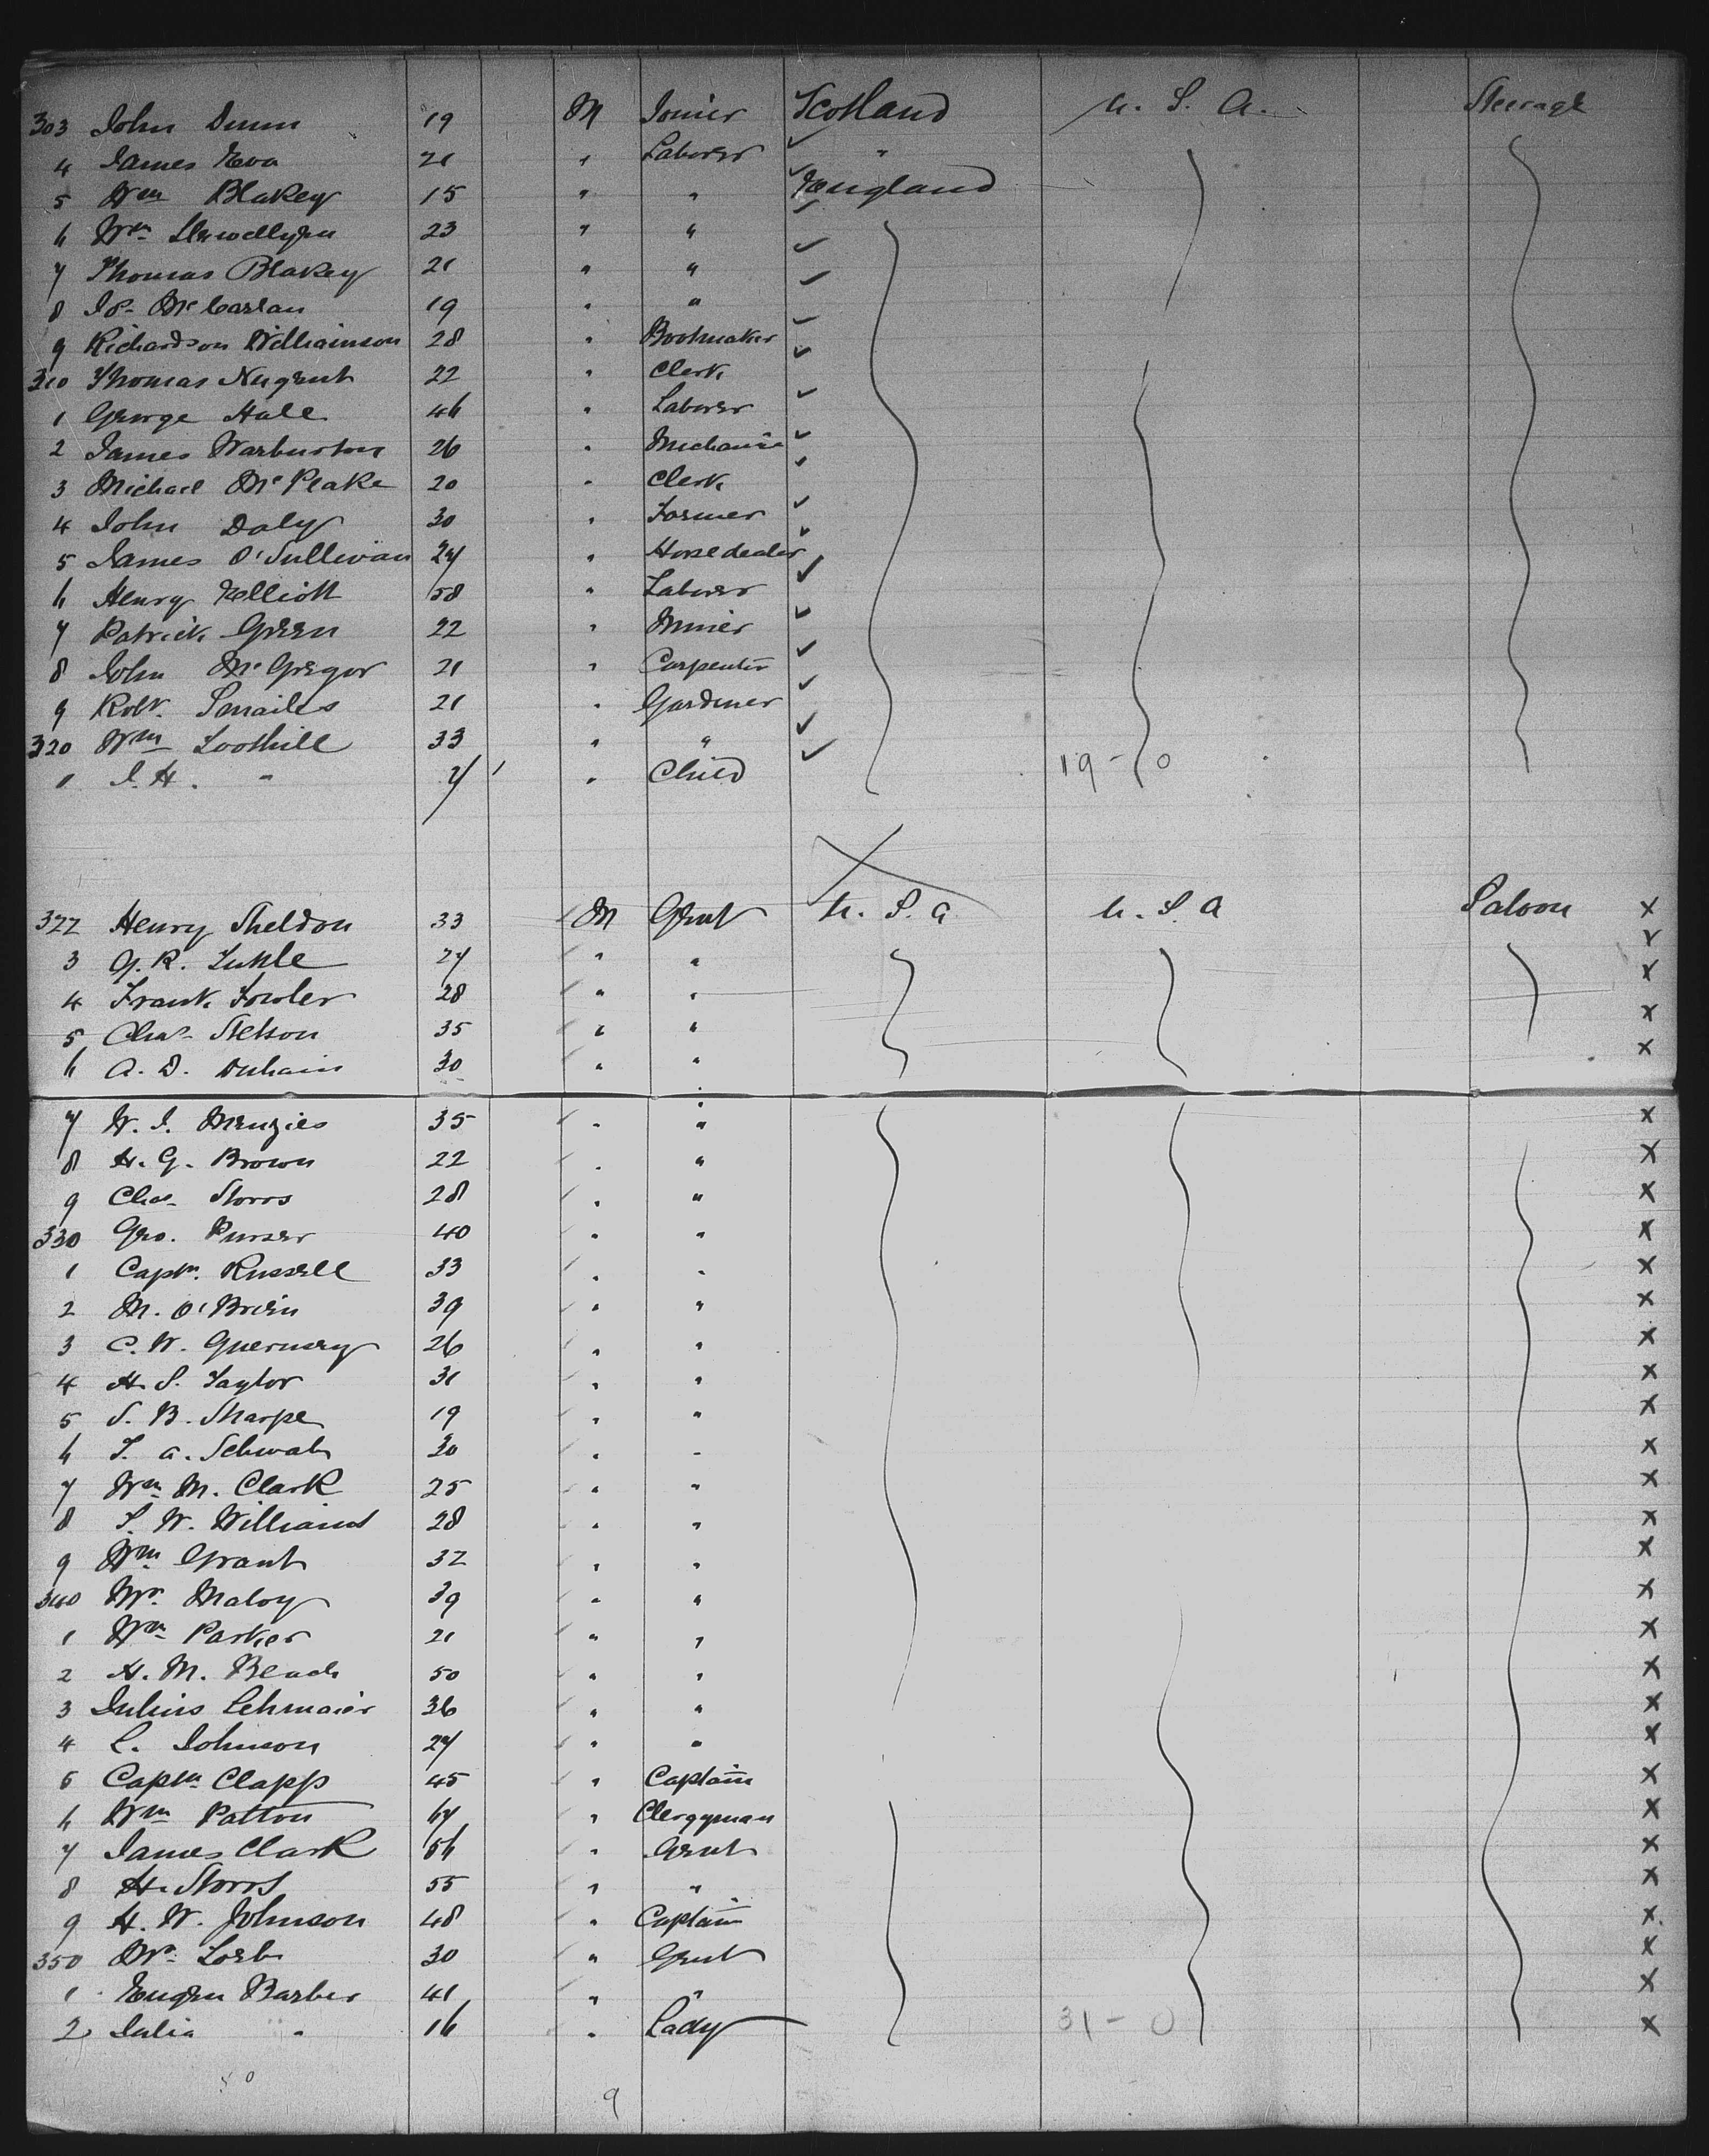 303 John Dunn 19 M Joiner Scotland U. S. A. Steerage
4 James Eva 21 " Laborer "
5 Wm Blakey 15 " " England
6 Wm Llewellyn 23 " "
7 Thomas Blakey 21 " "
8 Js. McCarlan 19 " "
9 Richardson Williamson 28 " Bootmaker
310 Thomas Nugent 22 " Clerk
1 George Hall 46 " Laborer
2 James Warburton 26 " Mechanic
3 Michael McPeake 20 " Clerk
4 John Daly 30 " Farmer
5 James O'Sullivan 27 " Horsedealer
6 Henry Elliott 58 " Laborer
7 Patrick Green 22 " Miner
8 John McGregor 21 " Carpenter
9 Robt. Smailes 21 " Gardiner
320 Wm Toothill 33 " "
1 J. H. " 7 " Child 19 - 0
322 Henry Sheldon 33 M Gent U. S. A U. S. A Saloon X
3 G. R. Tuttle 27 " " X
4 Frank Fowler 28 " " X
5 Chas. Stetson 35 " " X
6 A. D. 30 " " X
7 W. J. Menzies 35 " " X
8 H. G. Brown 22 " " X
9 Chas. Storrs 28 " " X
330 Geo. Purser 40 " " X
1 Captn. Russell 33 " " X
2 M. O'Brien 39 " " X
3 C. W. Guernsey 26 " " X
4 H. S. Taylor 31 " " X
5 S. B. Sharpe 19 " " X
6 T. A. Schwab 30 " " X
7 Wm M. Clark 25 " " X
8 T. W. Williams 28 " " X
9 Wm Grant 32 " " X
340 Mr. Maloy 39 " " X
1 Wm Parker 21 " " X
2 H. M. Beach 50 " " X
3 Julius Lehmaier 36 " " X
4 L. Johnson 27 " " X
5 Captn Clapp 45 " Captain X
6 Wm Patton 67 " Clergyman X
7 James Clark 56 " Gent X
8 H. Storrs 55 " " X
9 H. W. Johnson 48 " Captain X
350 Mr. Loeb 30 " Gent X
1 Eugen Barber 41 " " X
2 Julia " 16 " Lady 31 - 0 X
9